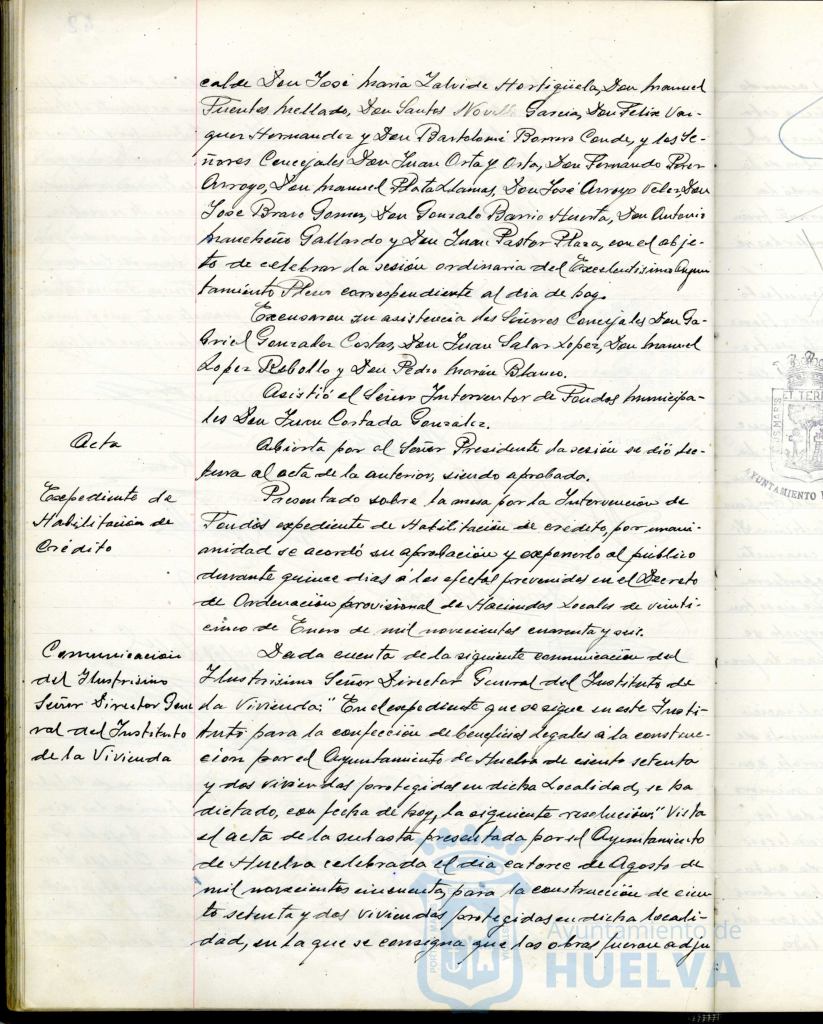 calde Don José María Zalvide Hortigüela, Don Manuel
Fuentes Mellado, Don Santos Novella Garcia, Don Felix Vaz-
quez Hernandez y Don Bartolomé Borrero Conde, y los Se-
ñores Concejales Don Juan Orta y Orta, Don Fernando Perez
Arroyo, Don Manuel Plata Llamas, Don José Arroyo Velez, Don
José Bravo Gomez, Don Gonzalo Barrio Huerta, Don Antonio
Mancheño Gallardo y Don Juan Pastor Plaza, con el obje-
to de celebrar la sesión ordinaria del Excelentísimo Ayun
tamiento Pleno correspondiente al dia de hoy.
Excusaron su asistencia los Señores Concejales Don Ga-
briel Gonzalez Costas, Don Juan Salas Lopez, Don Manuel
Lopez Rebollo y Don Pedro Morón Blanco.
Asistió el Señor Interventor de Fondos Municipa-
les Don Juan Cortada González.
Acta
Abierta por el Señor Presidente la sesión se dió lec-
tura al acta de la anterior, siendo aprobada.
Expediente de
Habilitación de
Crédito
Presentado sobre la mesa por la Intervención de
Fondos expediente de Habilitación de crédito, por unani-
midad se acordó su aprobación y exponerlo al público
durante quince dias a los efectos prevenidos en el Decreto
de Ordenación provisional de Haciendas Locales de veinti-
cinco de Enero de mil novecientos cuarenta y seis.
Comunicacion
del Ilustrisimo
Señor Director Gene
ral del Instituto
de la Vivienda
Dada cuenta de la siguiente comunicación del
Ilustrisimo Señor Director General del Instituto de
la Vivienda: "En el expediente que se sigue en este Insti-
tuto para la confección de beneficios legales a la construc-
cion por el Ayuntamiento de Huelva de ciento setenta
y dos viviendas protegidas en dicha Localidad, se ha
dictado, con fecha de hoy, la siguiente resolución: "Vista
el acta de la subasta presentada por el Ayuntamiento
de Huelva celebrada el dia catorce de Agosto de
mil novecientos cincuenta, para la construcción de cien-
to setenta y dos viviendas protegidas en dicha locali-
dad, en la que se consigna que las obras fueron adju
Ayuntamiento de
HUELVA
AYUNTAMIENTO